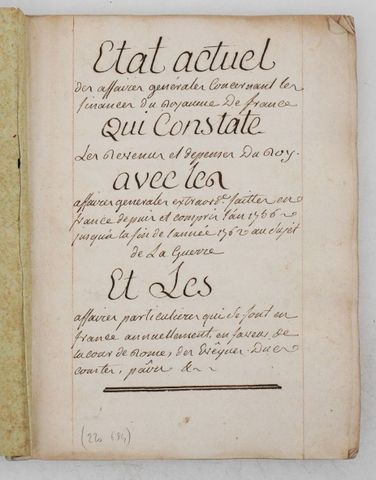 Etat actuel
des affaires génerales Concernant les
finances du Royaume De france
Qui Constate
Les Revenus et depenses Du Roy.
avec les
affaires generales extraord.res faittes en
france depuis et compris l'an 1756
jusqu'a la fin de l'année 1762 au sujet
de La Guerre
Et Les
affaires particulieres qui se font en
france annuellement, en faveur de
la cour de Rome, des Evêques, Ducs
comtes, pairs &c